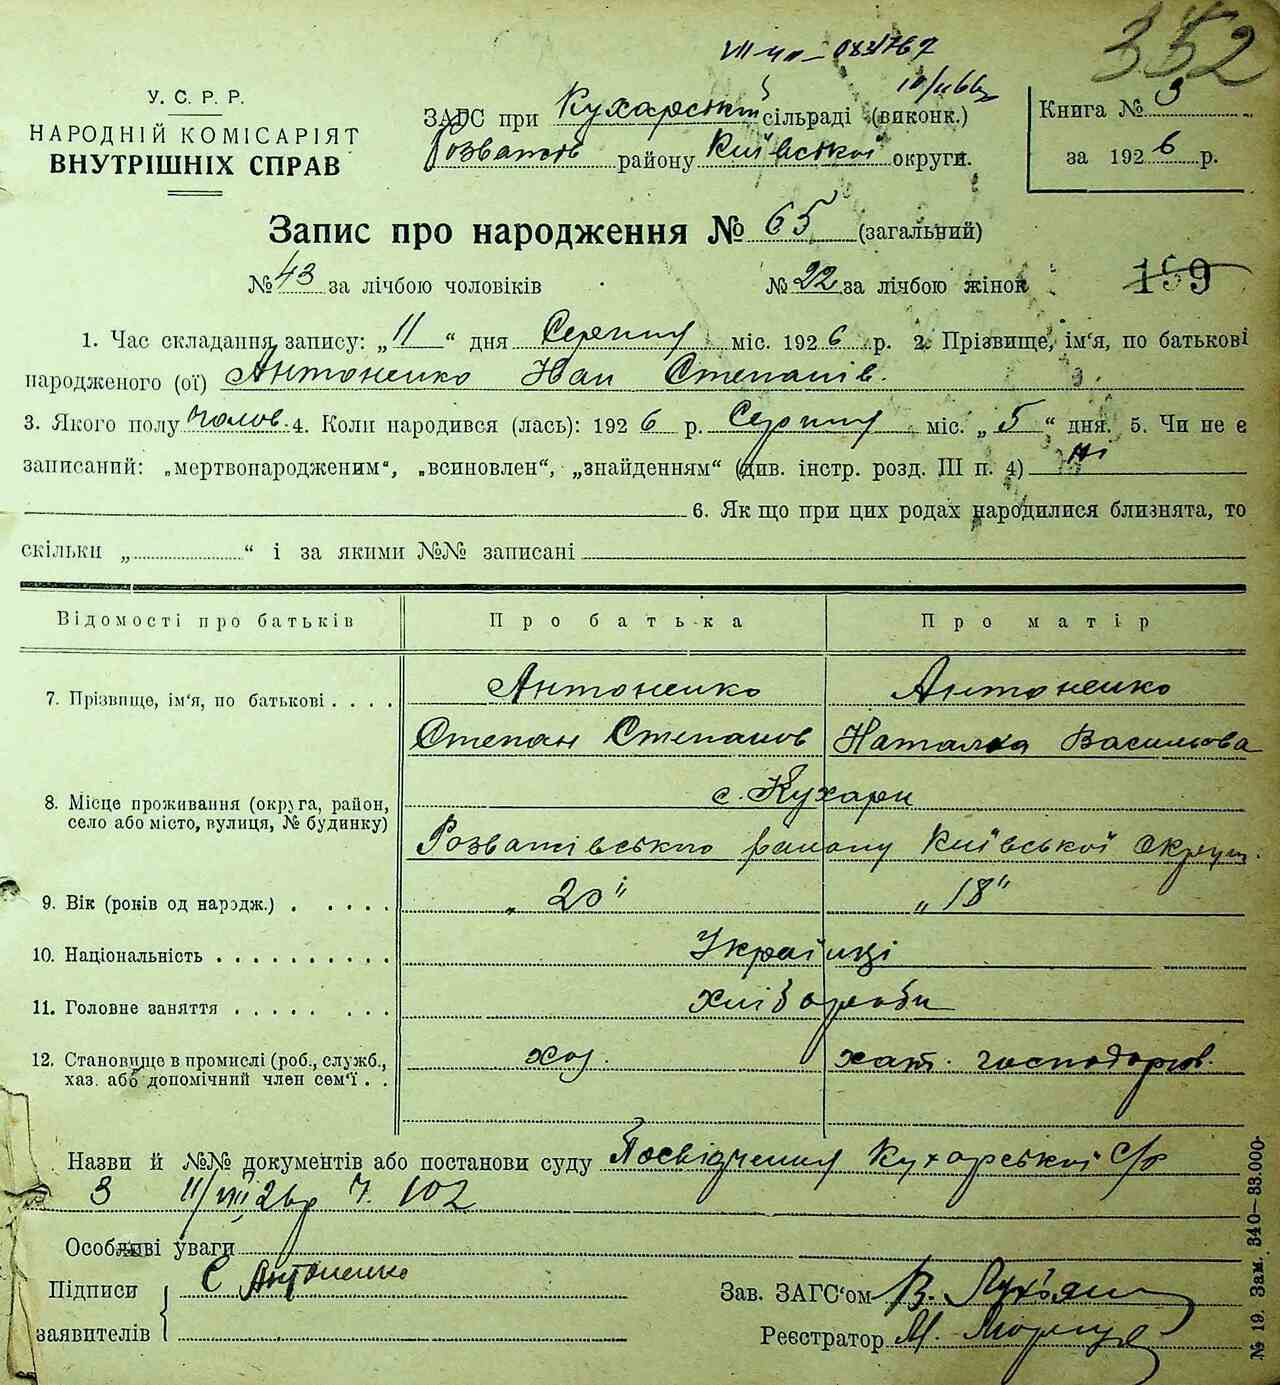 352
У. С. Р. Р.
НАРОДНІЙ КОМІСАРІЯТ
ВНУТРІШНІХ СПРАВ
ЗАГС при Кухарській сільраді (виконк.)
Розважів району Київської округи.
Книга № 3
за 1926 р.
Запис про народження № 65 (загальний)
№ 43 за лічбою чоловіків № 22 за лічбою жінок 199
1. Час складання запису: „11“ дня Серпня міс. 1926 р. 2. Прізвище, ім‘я, по батькові
народженого (ої) Антоненко Іван Степанів.
3. Якого полу чолов. 4. Коли народився (лась): 1926 р. Серпня міс. „5“ дня. 5. Чи не є
записаний: „мертвонародженим“, „всиновлен“, „знайденням“ (див. інстр. розд. III п. 4) ні
6. Як що при цих родах народилися близнята, то
скільки „ “ і за якими №№ записані
Відомості про батьків Про батька Про матір
7. Прізвище, ім‘я, по батькові . . . . Антоненко Антоненко
Степан Степанов Наталка Васильова
8. Місце проживання (округа, район, с. Кухари
село або місто, вулиця, № будинку)
Розважівського району Київської округи.
9. Вік (років од народж.) . . . . . „20“ „18“
10. Національність . . . . . . . . . . Українці
11. Головне заняття . . . . . . . . . хлібороби
12. Становище в промислі (роб., служб., хоз. хат. господорст.
хаз. або допомічний член сем‘ї . .
Назви й №№ документів або постанови суду Посвідчення Кухарської С/р
З 11/VIII 26р Ч. 102
Особливі уваги
Підписи С Антоненко
заявителів
Зав. ЗАГС‘ом В. Лук'ян
Реєстратор М.
№ 19. Зам. 340—33.000.